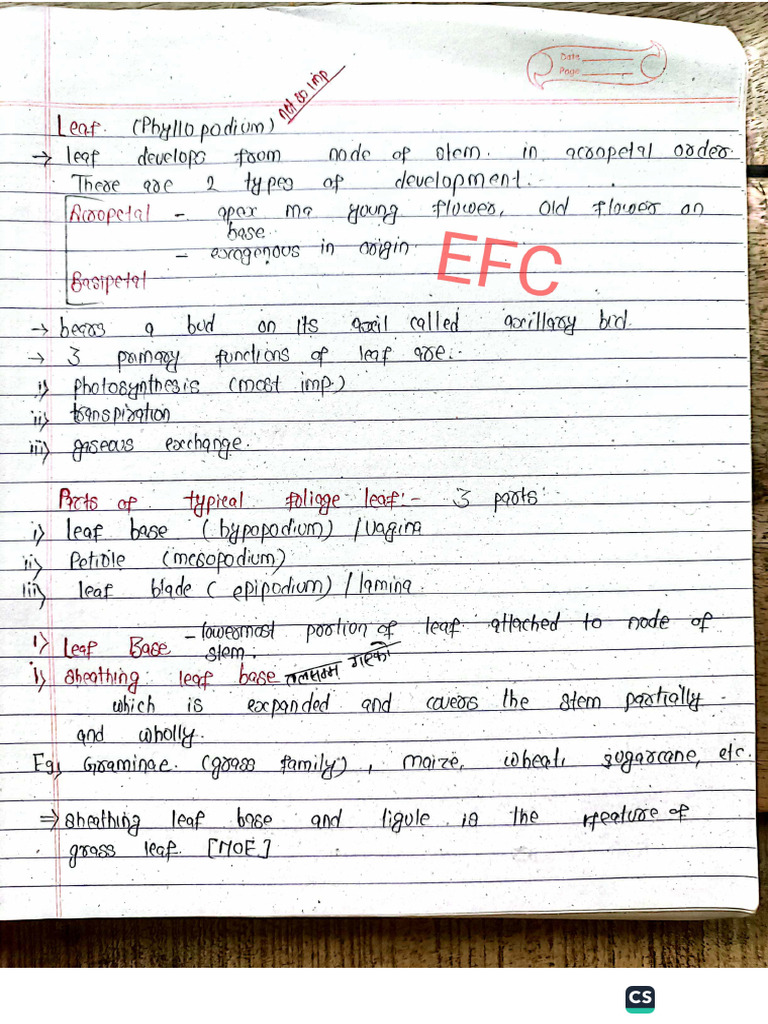 Date
Page
not so imp
Leaf (Phyllopodium)
→ leaf develops from node of stem in acropetal order.
There are 2 types of development.
Acropetal - apex ma young flower, old flower on
base.
- exogenous in origin.
Basipetal
EFC
→ bears a bud on its axil called axillary bud.
→ 3 primary functions of leaf are:-
i) Photosynthesis (most imp.)
ii) transpiration
iii) gaseous exchange.
Parts of typical foliage leaf:- 3 parts:
i) leaf base (hypopodium) /Vagina
ii) Petiole (mesopodium)
iii) leaf blade (epipodium) / lamina.
1) Leaf Base - lowermost portion of leaf attached to node of
stem.
i) sheathing leaf base तलसम्म गएको
which is expanded and covers the stem partially
and wholly.
Eg, Graminae (grass family), maize, wheat, sugarcane, etc.
⇒ sheathing leaf base and ligule is the feature of
grass leaf. [MOE]
CS